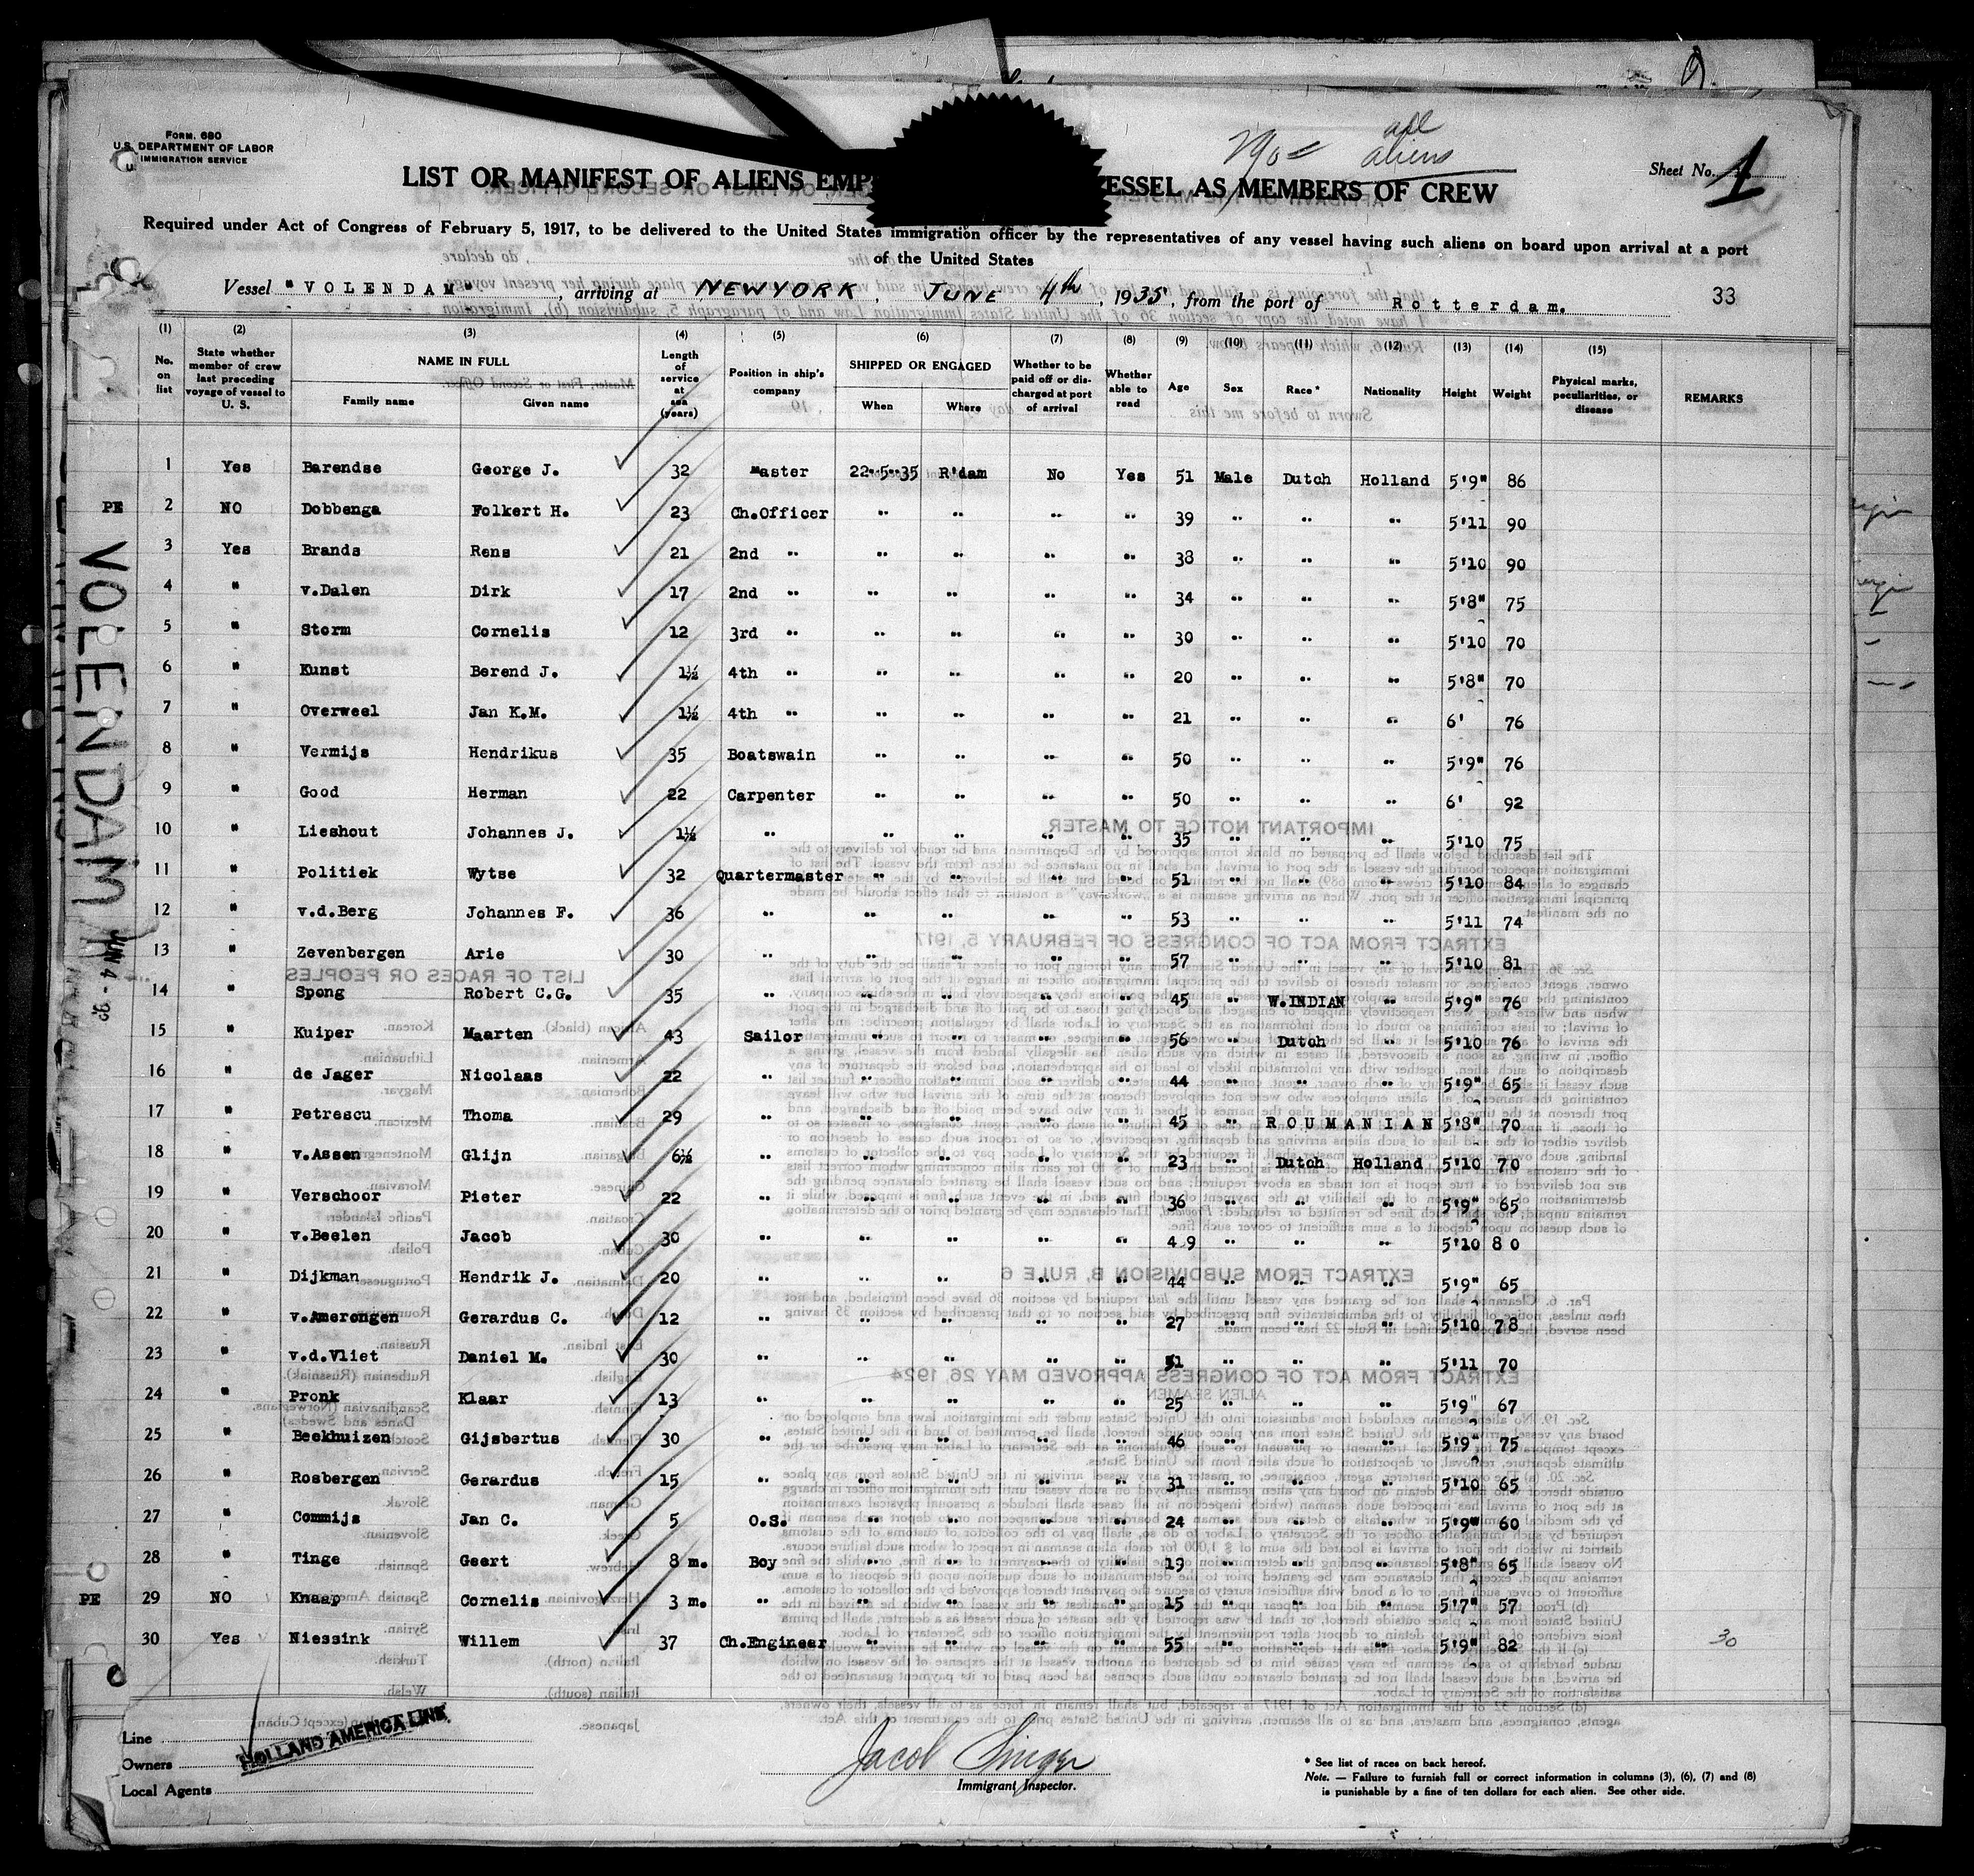 Form. 680
U.S. DEPARTMENT OF LABOR
IMMIGRATION SERVICE
all
aliens
Sheet No. 1
LIST OR MANIFEST OF ALIENS EMP ESSEL AS MEMBERS OF CREW
Required under Act of Congress of February 5, 1917, to be delivered to the United States immigration officer by the representatives of any vessel having such aliens on board upon arrival at a port
of the United States
Vessel "VOLENDAM", arriving at NEWYORK, JUNE 4th, 1935, from the port of Rotterdam. 33
(1) (2) (3) (4) (5) (6) (7) (8) (9) (10) (11) (12) (13) (14) (15)
No. on list State whether member of crew last preceding voyage of vessel to U. S. NAME IN FULL Family name Given name Length of service at sea (years) Position in ship's company SHIPPED OR ENGAGED When Where Whether to be paid off or discharged at port of arrival Whether able to read Age Sex Race* Nationality Height Weight Physical marks, peculiarities, or disease REMARKS
1 Yes Barendse George J. 32 Master 22-5-35 R'dam No Yes 51 Male Dutch Holland 5'9" 86
PE 2 NO Dobbenga Folkert H. 23 Ch.Officer " " " " 39 " " " 5'11 90
3 Yes Brands Rens 21 2nd " " " " " 38 " " " 5'10 90
4 " v.Dalen Dirk 17 2nd " " " " " 34 " " " 5'8" 75
5 " Storm Cornelis 12 3rd " " " " " 30 " " " 5'10 70
6 " Kunst Berend J. 1½ 4th " " " " " 20 " " " 5'8" 70
7 " Overweel Jan K.M. 1½ 4th " " " " " 21 " " " 6' 76
8 " Vermijs Hendrikus 35 Boatswain " " " " 50 " " " 5'9" 76
9 " Good Herman 22 Carpenter " " " " 50 " " " 6' 92
10 " Lieshout Johannes J. 1½ " " " " " 35 " " " 5'10 75
11 " Politiek Wytse 32 Quartermaster " " " " 51 " " " 5'10 84
12 " v.d.Berg Johannes F. 36 " " " " " 53 " " " 5'11 74
13 " Zevenbergen Arie 30 " " " " " 57 " " " 5'10 81
14 " Spong Robert C.G. 35 " " " " " 45 " W.INDIAN " 5'9" 76
15 " Kuiper Maarten 43 Sailor " " " " 56 " Dutch " 5'10 76
16 " de Jager Nicolaas 22 " " " " " 44 " " " 5'9" 65
17 " Petrescu Thoma 29 " " " " " 45 " ROUMANIAN 5'8" 70
18 " v.Assen Glijn 6½ " " " " " 23 " Dutch Holland 5'10 70
19 " Verschoor Pieter 22 " " " " " 36 " " " 5'9" 65
20 " v.Beelen Jacob 30 " " " " " 49 " " " 5'10 80
21 " Dijkman Hendrik J. 20 " " " " " 44 " " " 5'9" 65
22 " v.Amerongen Gerardus C. 12 " " " " " 27 " " " 5'10 78
23 " v.d.Vliet Daniel M. 30 " " " " " 51 " " " 5'11 70
24 " Pronk Klaar 13 " " " " " 25 " " " 5'9" 67
25 " Beekhuizen Gijsbertus 30 " " " " " 46 " " " 5'9" 75
26 " Rosbergen Gerardus 15 " " " " " 31 " " " 5'10 65
27 " Commijs Jan C. 5 O.S. " " " " 24 " " " 5'9" 60
28 " Tinge Geert 8 m. Boy " " " " 19 " " " 5'8" 65
PE 29 NO Knaap Cornelis 3 m. " " " " " 15 " " " 5'7" 57
30 Yes Niessink Willem 37 Ch.Engineer " " " " 55 " " " 5'9" 82 30
VOLENDAM JUN 4 -
Line
Owners
Local Agents
HOLLAND AMERICA LINE.
Jacob Singer
Immigrant Inspector.
* See list of races on back hereof.
Note. — Failure to furnish full or correct information in columns (3), (6), (7) and (8)
is punishable by a fine of ten dollars for each alien. See other side.